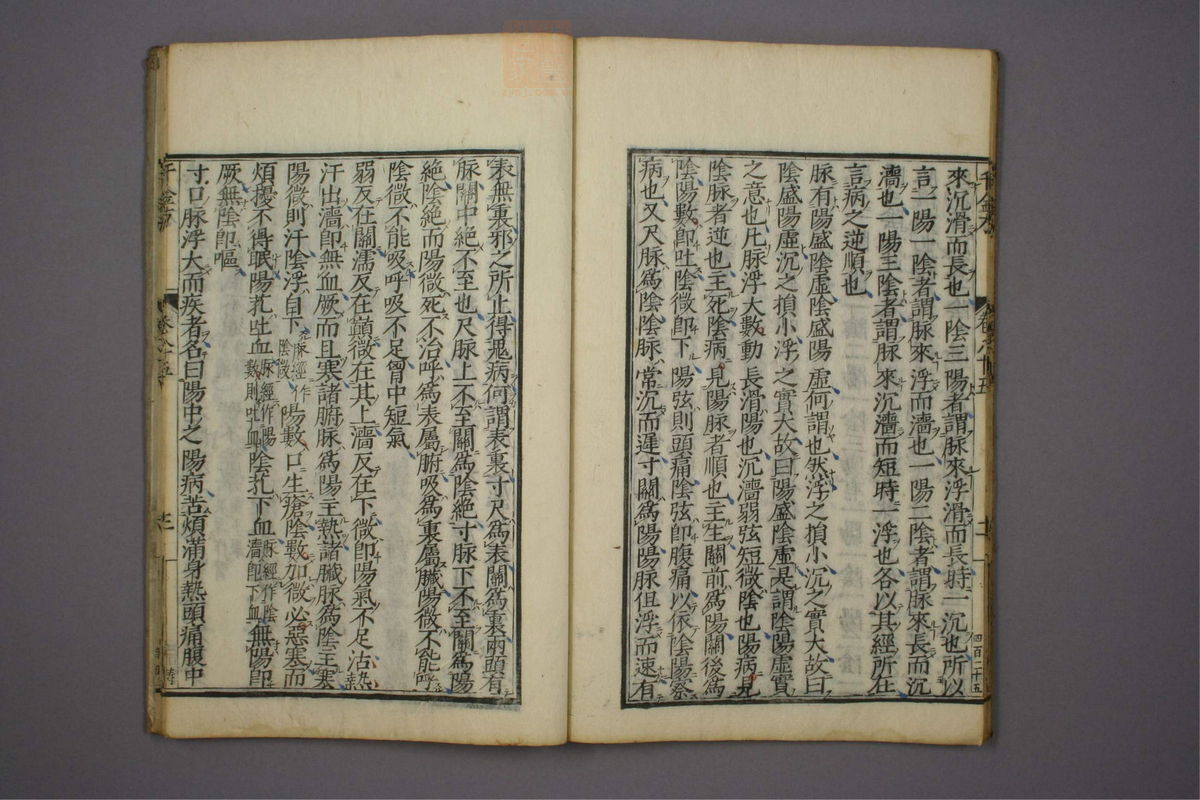 來沉滑而長也一陰三陽者謂脉來浮滑而長時一沉也所以
言一陽一陰者謂脉來浮而濇也一陽二陰者謂脉來長而沉
濇也一陽三陰者謂脉來沉濇而短時一浮也各以其經所在
言病之逆順也
脉有陽盛陰虛陰盛陽虛何謂也然浮之損小沉之實大故曰
陰盛陽虛沉之損小浮之實大故曰陽盛陰虛是謂陰陽虛實
之意也凡脉浮大數動長滑陽也沉濇弱弦短微陰也陽病見
陰脉者逆也主死陰病見陽脉者順也主生關前為陽關後為
陰陽數即吐陰微即下陽弦則頭痛陰弦即腹痛以依陰陽察
病也又尺脉為陰陰脉常沉而遲寸關為陽陽脉但浮而速有
表無裏邪之所止得鬼病何謂表裏寸尺為表關為裏兩頭有
脉關中絕不至也尺脉上不至關為陰絕寸脉下不至關為陽
絕陰絕而陽微死不治呼為表屬腑吸為裏屬臟陽微不能呼
陰微不能吸呼吸不足胷中短氣
弱反在關濡反在巔微在其上濇反在下微即陽氣不足沾熱
汗出濇即無血厥而且寒諸腑脉為陽主熱諸臟脉為陰主寒
陽微則汗陰浮自下 陽數口生瘡陰數加微必惡寒而
煩擾不得眠陽芤吐血脉經作陽數則吐血陰芤下血脉經作陰濇即下血無陽即
厥無陰即嘔
寸口脉浮大而疾者名曰陽中之陽病苦煩滿身熱頭痛腹中